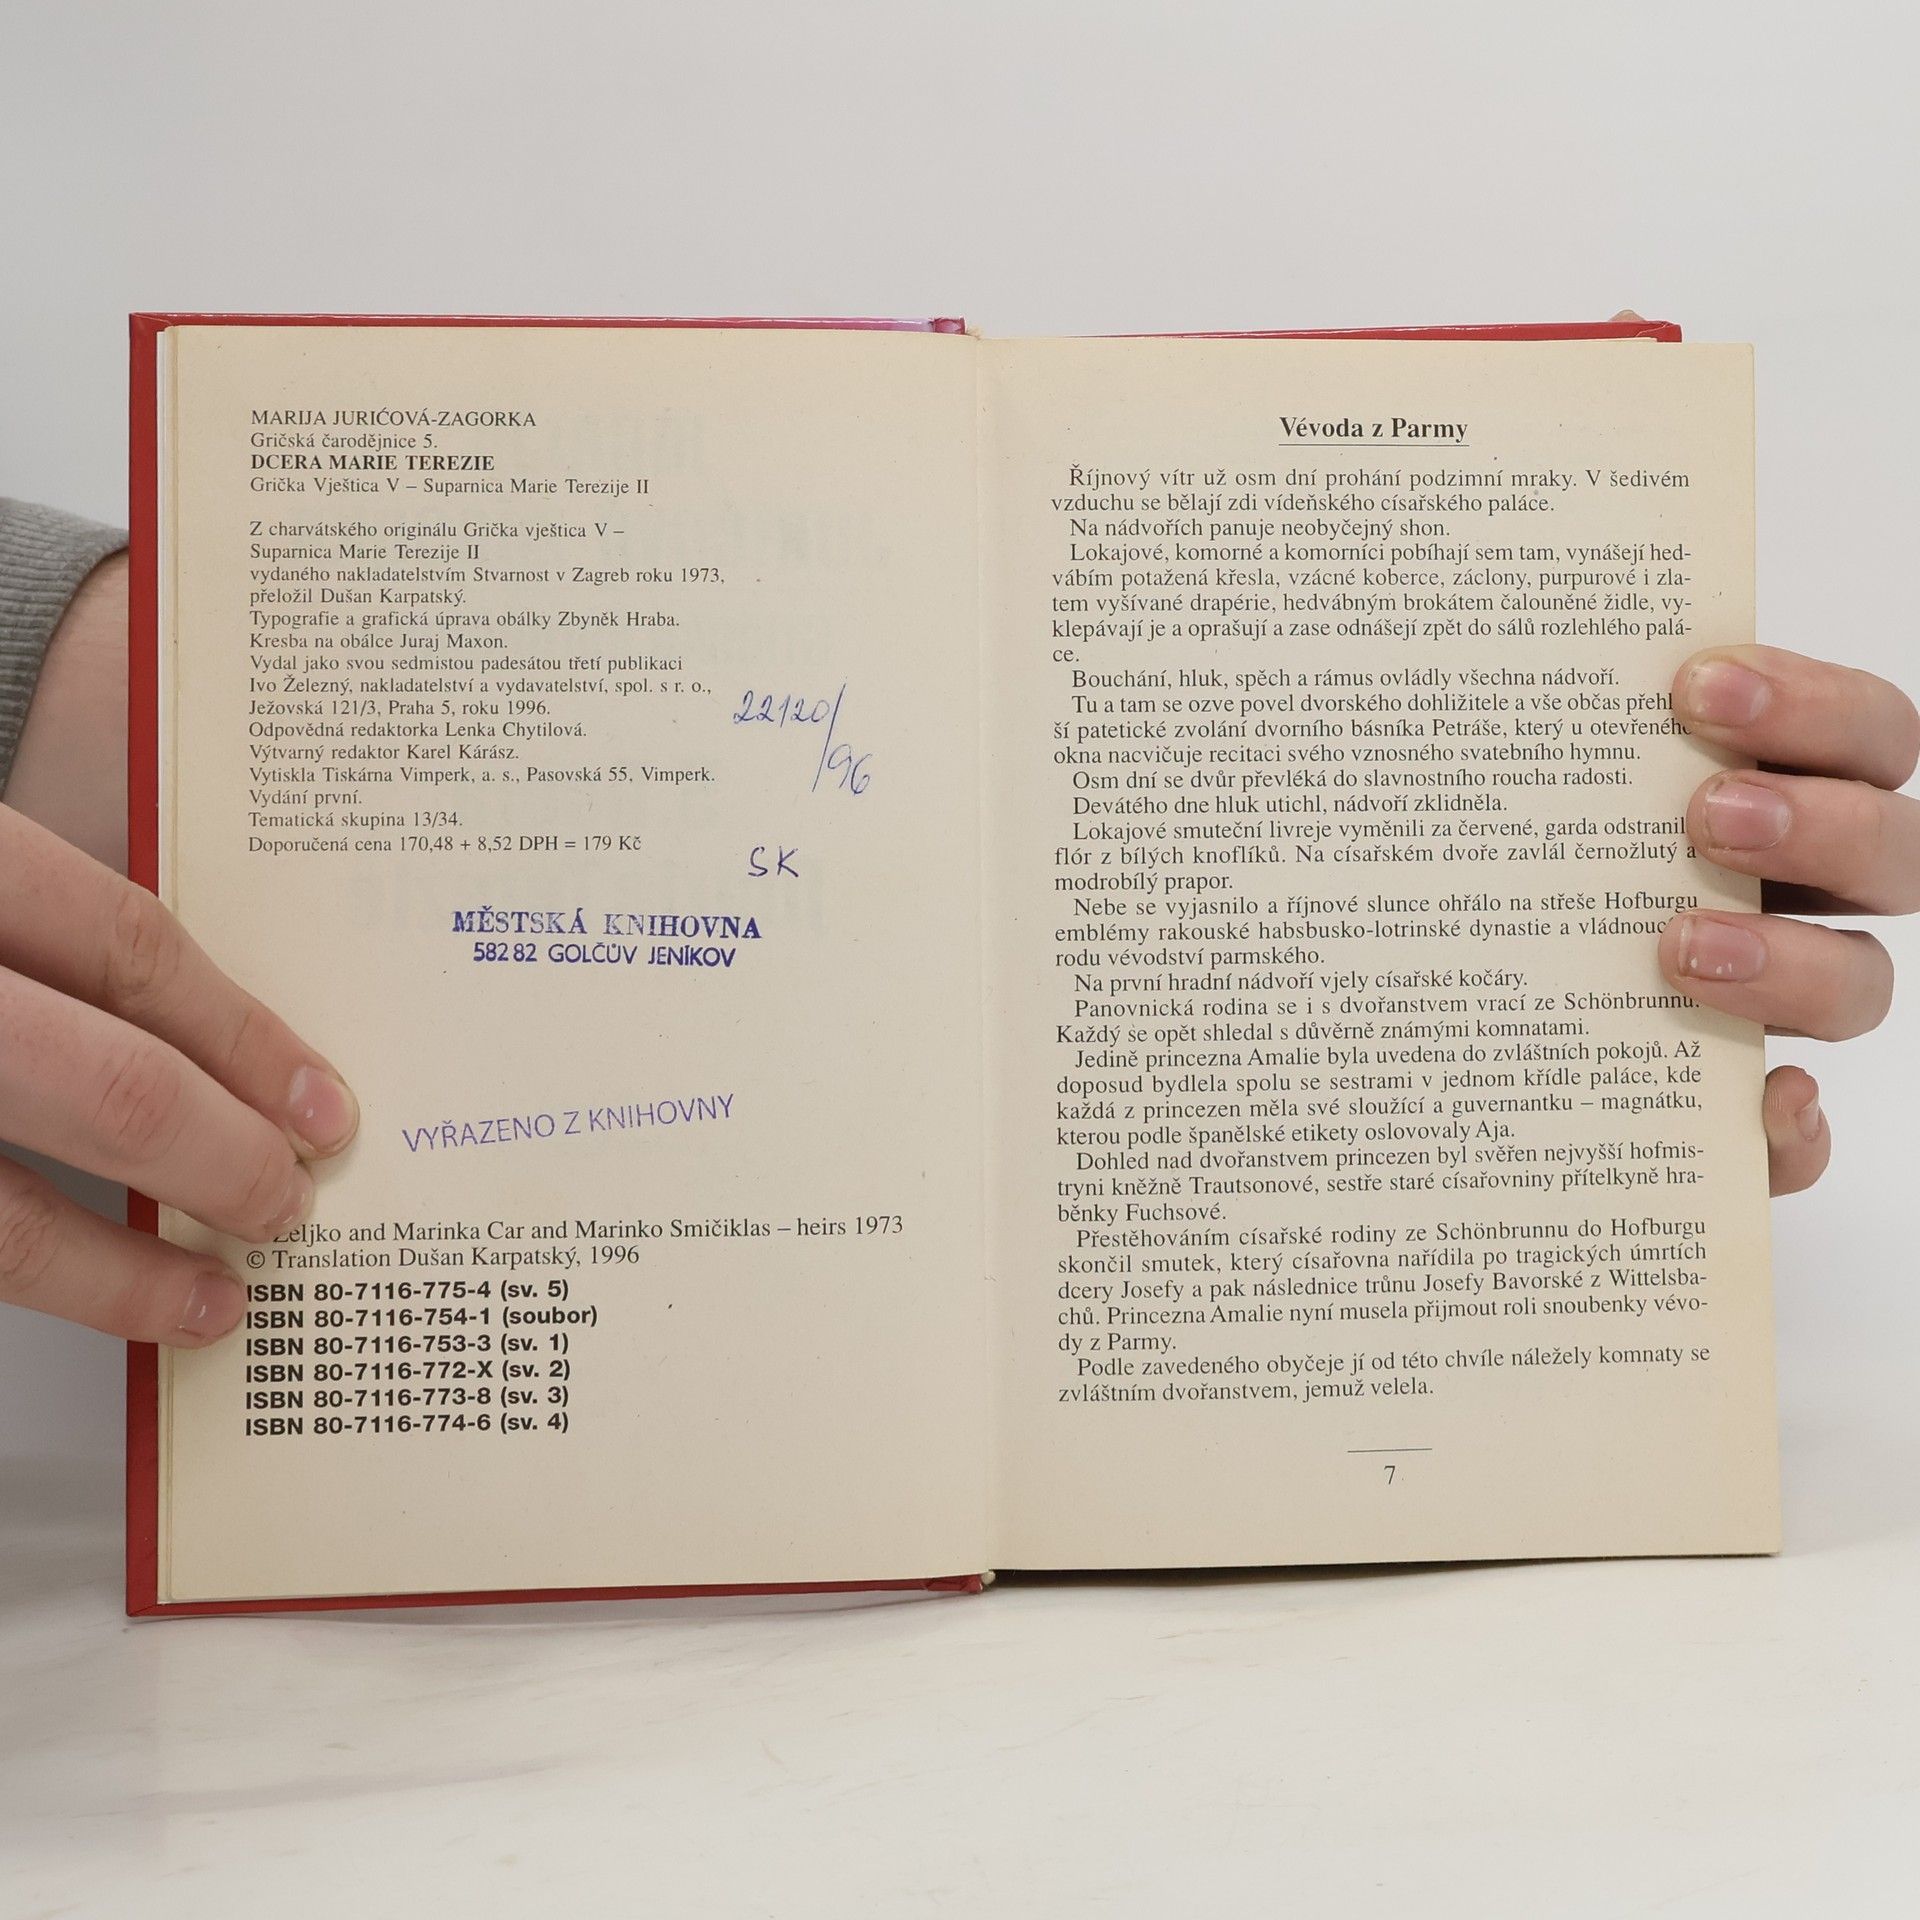 MARIJA JURIĆOVÁ-ZAGORKA
Gričská čarodějnice 5.
DCERA MARIE TEREZIE
Grička Vještica V – Suparnica Marie Terezije II
Z charvátského originálu Grička vještica V –
Suparnica Marie Terezije II
vydaného nakladatelstvím Stvarnost v Zagreb roku 1973,
přeložil Dušan Karpatský.
Typografie a grafická úprava obálky Zbyněk Hraba.
Kresba na obálce Juraj Maxon.
Vydal jako svou sedmistou padesátou třetí publikaci
Ivo Železný, nakladatelství a vydavatelství, spol. s r. o.,
Ježovská 121/3, Praha 5, roku 1996.
Odpovědná redaktorka Lenka Chytilová.
Výtvarný redaktor Karel Kárász.
Vytiskla Tiskárna Vimperk, a. s., Pasovská 55, Vimperk.
Vydání první.
Tematická skupina 13/34.
Doporučená cena 170,48 + 8,52 DPH = 179 Kč
22120/
/96
SK
MĚSTSKÁ KNIHOVNA
582 82 GOLČŮV JENÍKOV
VYŘAZENO Z KNIHOVNY
Željko and Marinka Car and Marinko Smičiklas – heirs 1973
© Translation Dušan Karpatský, 1996
ISBN 80-7116-775-4 (sv. 5)
ISBN 80-7116-754-1 (soubor)
ISBN 80-7116-753-3 (sv. 1)
ISBN 80-7116-772-X (sv. 2)
ISBN 80-7116-773-8 (sv. 3)
ISBN 80-7116-774-6 (sv. 4)
Vévoda z Parmy
Říjnový vítr už osm dní prohání podzimní mraky. V šedivém
vzduchu se bělají zdi vídeňského císařského paláce.
Na nádvořích panuje neobyčejný shon.
Lokajové, komorné a komorníci pobíhají sem tam, vynášejí hed-
vábím potažená křesla, vzácné koberce, záclony, purpurové i zla-
tem vyšívané drapérie, hedvábným brokátem čalouněné židle, vy-
klepávají je a oprašují a zase odnášejí zpět do sálů rozlehlého palá-
ce.
Bouchání, hluk, spěch a rámus ovládly všechna nádvoří.
Tu a tam se ozve povel dvorského dohližitele a vše občas přehl
ší patetické zvolání dvorního básníka Petráše, který u otevřeného
okna nacvičuje recitaci svého vznosného svatebního hymnu.
Osm dní se dvůr převléká do slavnostního roucha radosti.
Devátého dne hluk utichl, nádvoří zklidněla.
Lokajové smuteční livreje vyměnili za červené, garda odstranil
flór z bílých knoflíků. Na císařském dvoře zavlál černožlutý a
modrobílý prapor.
Nebe se vyjasnilo a říjnové slunce ohřálo na střeše Hofburgu
emblémy rakouské habsbusko-lotrinské dynastie a vládnouc
rodu vévodství parmského.
Na první hradní nádvoří vjely císařské kočáry.
Panovnická rodina se i s dvořanstvem vrací ze Schönbrunnu.
Každý se opět shledal s důvěrně známými komnatami.
Jedině princezna Amalie byla uvedena do zvláštních pokojů. Až
doposud bydlela spolu se sestrami v jednom křídle paláce, kde
každá z princezen měla své sloužící a guvernantku – magnátku,
kterou podle španělské etikety oslovovaly Aja.
Dohled nad dvořanstvem princezen byl svěřen nejvyšší hofmis-
tryni kněžně Trautsonové, sestře staré císařovniny přítelkyně hra-
běnky Fuchsové.
Přestěhováním císařské rodiny ze Schönbrunnu do Hofburgu
skončil smutek, který císařovna nařídila po tragických úmrtích
dcery Josefy a pak následnice trůnu Josefy Bavorské z Wittelsba-
chů. Princezna Amalie nyní musela přijmout roli snoubenky vévo-
dy z Parmy.
Podle zavedeného obyčeje jí od této chvíle náležely komnaty se
zvláštním dvořanstvem, jemuž velela.
7